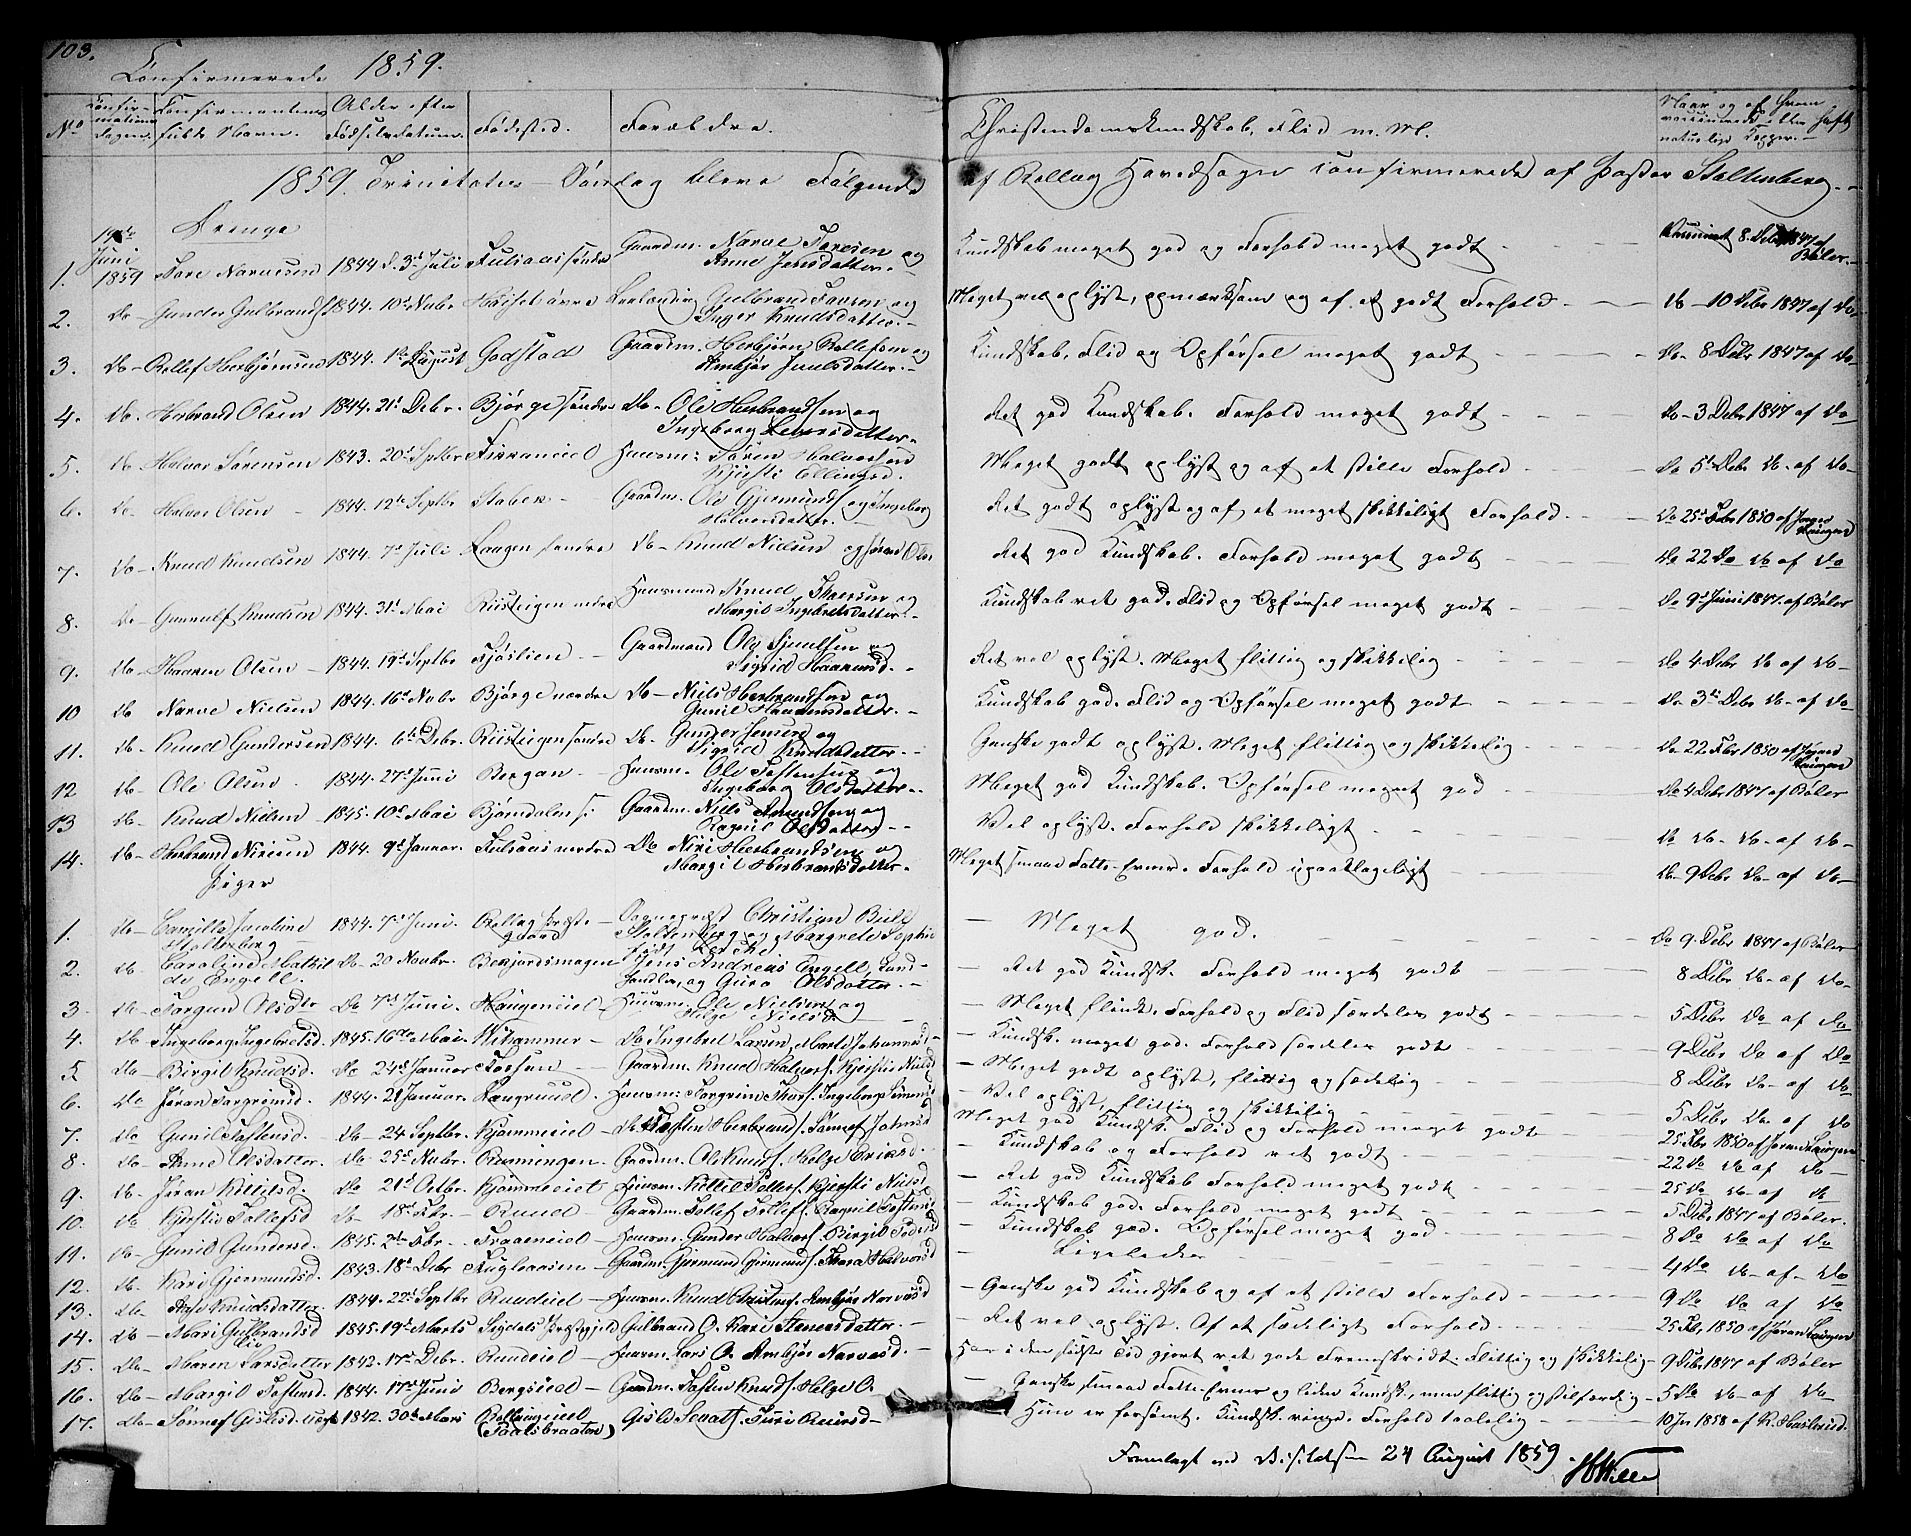 103.
Confirmerede 1859.
No
Confirmations Dagen.
Confirmantens fulde Navn.
Alder efter Fødselsdatum.
Fødested.
Forældre.
Christendomskundskab, Flid m. M.
Naar og af hvem vaccinerede eller havt naturlige Kopper.
1859. Trinitatis-Søndag bleve Følgende af Rollag Hovedsogn confirmerede af Pastor Stoltenberg.
Drenge
1. 19de Juni 1859 Tore Narvesen 1844 d. 3d Juli Fulsaas søndre Gaardm. Narve Toresen og Anne Jensdatter. Kundskab meget god og Forhold meget godt Vaccineret 8. Debr 1847 af Bøler.
2. do Gunder Gulbrands. 1844. 10d Nobr Høiset øvre Gulbrand Larsen og Inger Knudsdatter. Meget vel oplyst, opmærksom og af et godt Forhold do 10 Debr 1847 af do
3. do Rollef Herbjørnsen 1844. 1ste August Godstad Gaardm. Herbjørn Rollefsen og Ambjør Juulsdatter. Kundskab, Flid og Opførsel meget godt do 8 Debr 1847 af do
4. do Herbrand Olsen 1844. 21d Debr. Bjørge søndre do Ole Herbrandsen og Ingeborg Larsdatter. Ret god Kundskab. Forhold meget godt do 3 Debr 1847 af do
5. do Halvor Sørensen 1843. 20d Septbr Husm: Søren Halvorsen Kjisti Ellingsd. Meget godt oplyst og af et stille Forhold do 5d Debr do af do
6. do Halvor Olsen 1844. 12te Septbr Staben Gaardm. Ole Gjermunds. og Ingeborg Halvorsdatter. Ret godt oplyst og af et meget skikkeligt Forhold do 25d Febr 1850 af Jøran Laugen
7. do Knud Knudsen 1844. 7d Juli Laagen søndre do Knud Nielsen og Jøran Ols. Ret god Kundskab. Forhold meget godt do 22 do do af do
8. do Gunnulf Knudsen 1844. 31d Mai Rusteigen nedre Huusmand Knud og Margit Ingebretsdatter. Kundskab ret god. Flid og Opførsel meget godt do 9d Juni 1847 af Bøler
9. do Haaven Olsen 1844. 19d Septbr Fjøslien Gaardmand Ole og Sigrid Haavensd. Ret vel oplyst. Meget flittig og skikkelig do 4 Debr do af do
10 do Narve Nielsen 1844. 16d Nobr Bjørge nordre do Niels Herbrandsen og Gunil Haavensdatter. Kundskab god. Flid og Opførsel meget godt do 3de Debr do af do
11. do Knud Gundersen 1844. 6te Debr. Rusteigen søndre do Gunder og Sigrid Knudsdatter. Ganske godt oplyst. Meget flittig og skikkelig do 22 Febr 1850 af Laugen
12 do Ole Olsen 1844. 27d Juni Bergan Huusm. Ole Tostensen og Ingeborg Olsdatter. Meget god Kundskab. Opførsel meget god do 4 Debr 1847 af Bøler
13 do Knud Nielsen 1845. 10d Mai Bjørndalen s: Gaardm. Niels Amundsen og Ragnil Olsdatter Vel oplyst. Forhold skikkeligt do do do af do
14. do Herbrand Nirisen 1844. 9d Januar. Fulsaas nordre do Niri Herbrandsen og Margit Herbrandsdatter. Meget smaae Fatte-Evner. Forhold upaaklageligt do 9 Debr do af do
Piger
1. do Camilla Jacobine Stoltenberg 1844. 7d Juni. Rollag Præstegaard Sognepræst Christian Stoltenberg og Margrete Sophie født Lerche Meget god. do 9 Debr 1847 af Bøler
2. do Caroline Mathilde Engell. do 20 Novbr. Bekjordsmogen Jens Andreas Engell, Landhandler, og Guro Olsdatter. Ret god Kundsk. Forhold meget godt 8 Debr do af do
3. do Torgun Olsdtr do 7d Juni. Haugeneiel Huusm: Ole Nielsen og Helge Nielsd. Meget flink. Forhold og Flid særdeles godt 5 Debr do af do
4. do Ingeborg Ingebretsd. 1845. 16de Mai. Mihammer do Ingebret Larsen, Marte Johannesd. Kundsk. meget god. Forhold særdeles godt 9 Debr do af do
5. do Birgit Knudsd. do 24d Januar Gaardm. Knud Halvors. Kjersti Meget godt oplyst, flittig og sædelig 8 Debr do af do
6. do Jøran Torgrimsd. 1844. 21 Januar. Langruud. Huusm: Torgrim Thors. Ingeborg Simensd. Vel oplyst, flittig og skikkelig 5 Debr do af do
7. do Gunil Tostensd. do 24 Septbr. Kjømmeeiel do Tosten Herbrands. Sønnøf Johnsd. Meget god Kundsk. Flid og Forhold meget godt 25 Febr 1850 af Jøran Laugen
8. do Anne Olsdatter. do 25d Nobr. Ramningen Gaardm. Ole Knuds. Helge Eriksd. Kundskab og Forhold ret godt 22 do af do
9. do Jøran Kittilsd. do 21d Octbr. Kjømmeeiel Huusm. Kittil Tollefs. Kjersti Nielsd. Ret god Kundskab Forhold meget godt 25 do do af do
10. do Kjersti Tollefsd do 18d Ruud Gaardm. Tollef Tollefs. Ragnil Tostensd. Kundskab god. Forhold meget godt 5 Debr. 1847 af Bøler.
11. do Gunil Gundersd. 1845. 2den Febr. Fraaneeiel Huusm. Gunder Halvors. Birgit Kundskab god. Opførsel meget god 8 do af do
12. do Kari Gjermundsd. 1843. 18d Debr Fuglaasen Gaardm. Gjermund Gjermunds. Thora Halvorsd Ligeledes 4 do do af do
13. do Aase Knudsdatter. 1844. 22d Septbr Ruudeiel Huusm. Knud Ambjør Narvesd Ganske god Kundskab og af et stille Forhold 9 do do af do
14. do Mari Gulbrandsd Lio 1845. 19d Marts Sigdals Præstegjeld Gulbrand O. Kari Steensdatter. Ret vel oplyst. Af et sædeligt Forhold. 25 Febr 1850 af Jøran Laugen
15. do Maren Larsdatter 1842. 17d Debr. Ruudeiel Huusm. Lars O. Ambjør Narvesd. Har i den sidste Tid gjort ret gode Fremskridt. Flittig og skikkelig 9 Debr 1847 af Bøler
16. do Margit Tostensd. 1844. 17d Juni Bergseiel Gaardm. Tosten Knuds. Helge O. Ganske smaae Fatte-Evner og liden Kundsk., men flittig og stilfærdig 5 do do af do
17. do Sønnøf Gislesd. 1842. 30d Mars Rollaugeiel (Paalsbraaten) Gisle Sevats. Turi Reiersd Hun er forsømt. Kundsk. ringe. Forhold taalelig 10 Jan 1858 af K. Haslerud.
Fremlagt ved Visitatsen 24 August 1859.